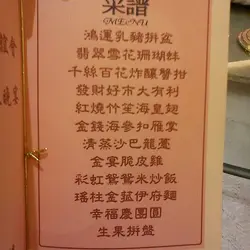 菜譜
MENU
鴻運乳豬拼盆
翡翠雪花珊瑚蚌
千絲百花炸釀蟹拑
發財好市大有利
紅燒竹笙海皇翅
金錢海參扣雁掌
清蒸沙巴龍躉
金宴脆皮雞
彩虹鴛鴦米炒飯
瑤柱金菇伊府麵
幸福慶團圓
生果拼盤